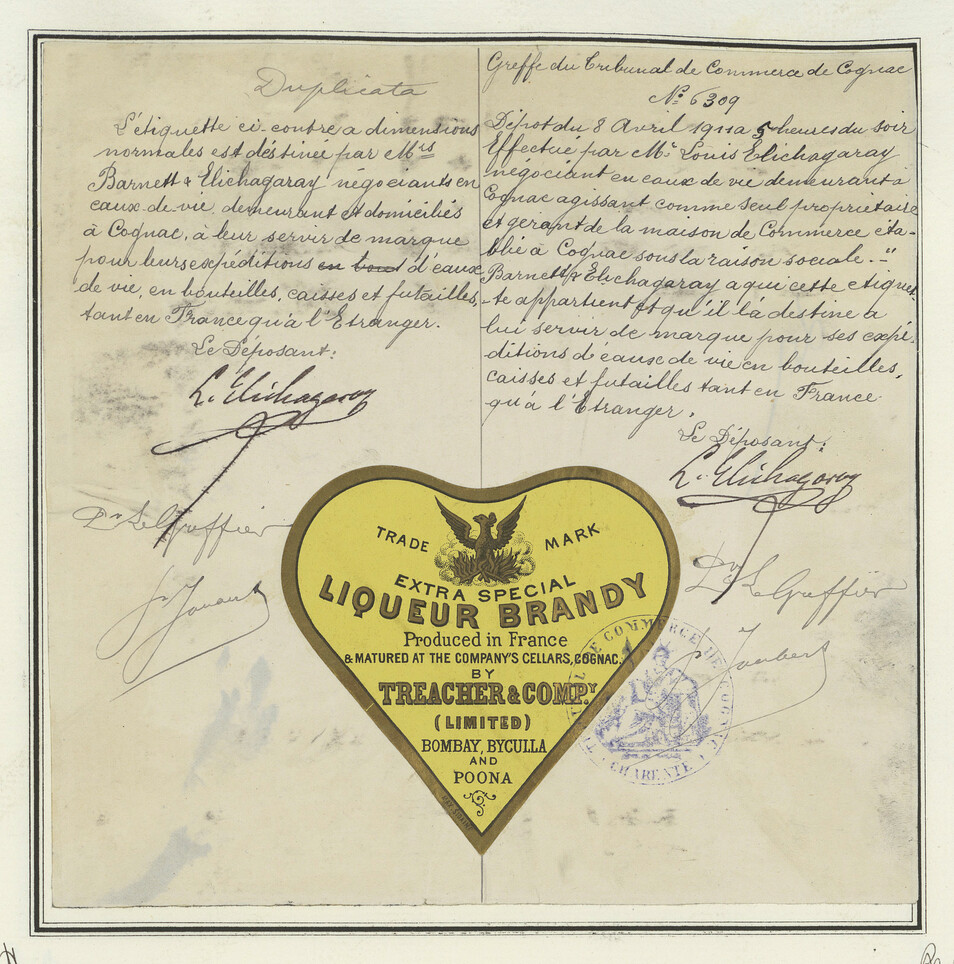 Duplicata
L'étiquette ci-contre a dimensions
normales est déstinée par Mrs
Barnett & Elichagaray négociants en
eaux-de-vie, demeurant et domiciliés
à Cognac, à leur servir de marque
pour leurs expéditions en bout d'eaux
de vie, en bouteilles, caisses et futailles,
tant en France qu'à l'Etranger.
Le Déposant:
L. Elichagaray
Le Greffier
Greffe du Tribunal de Commerce de Cognac
No. 6309
Dépot du 8 Avril 1911 a 5 heures du soir
Effectué par Mr. Louis Elichagaray
négociant en eaux de vie demeurant à
Cognac agissant comme seul propriétaire
et gérant de la maison de Commerce éta-
blie à Cognac sous la raison sociale. "
Barnett & Elichagaray a qui cette étiquet-
-te appartient et qu'il l'a destine a
lui servir de marque pour ses expé-
ditions d'eaux de vie en bouteilles,
caisses et futailles tant en France
qu'à l'Etranger.
Le Déposant:
L. Elichagaray
Le Greffier
Joubert
TRADE MARK
EXTRA SPECIAL
LIQUEUR BRANDY
Produced in France
& MATURED AT THE COMPANY'S CELLARS, COGNAC.
BY
TREACHER & COMPY
(LIMITED)
BOMBAY, BYCULLA
AND
POONA
DE COMMERCE DE COGNAC
CHARENTE